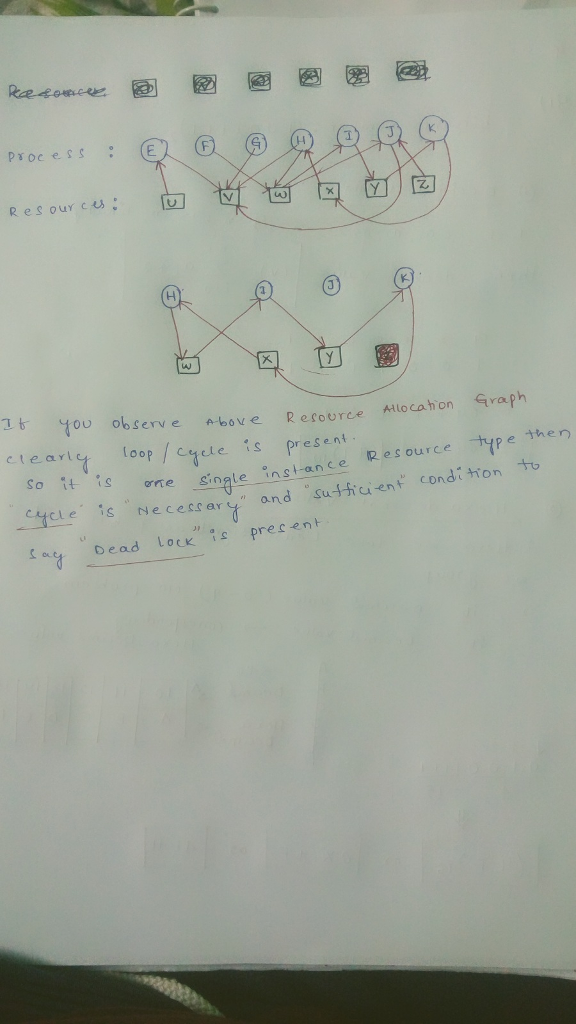 Resources
Process : E F G H I J K
Resources: U V W X Y Z
H I J K
W X Y
If you observe Above Resource Allocation Graph
clearly loop/cycle is present.
so it is one single instance Resource type then
"cycle" is "Necessary" and "sufficient" condition to
say "Dead lock" is present.